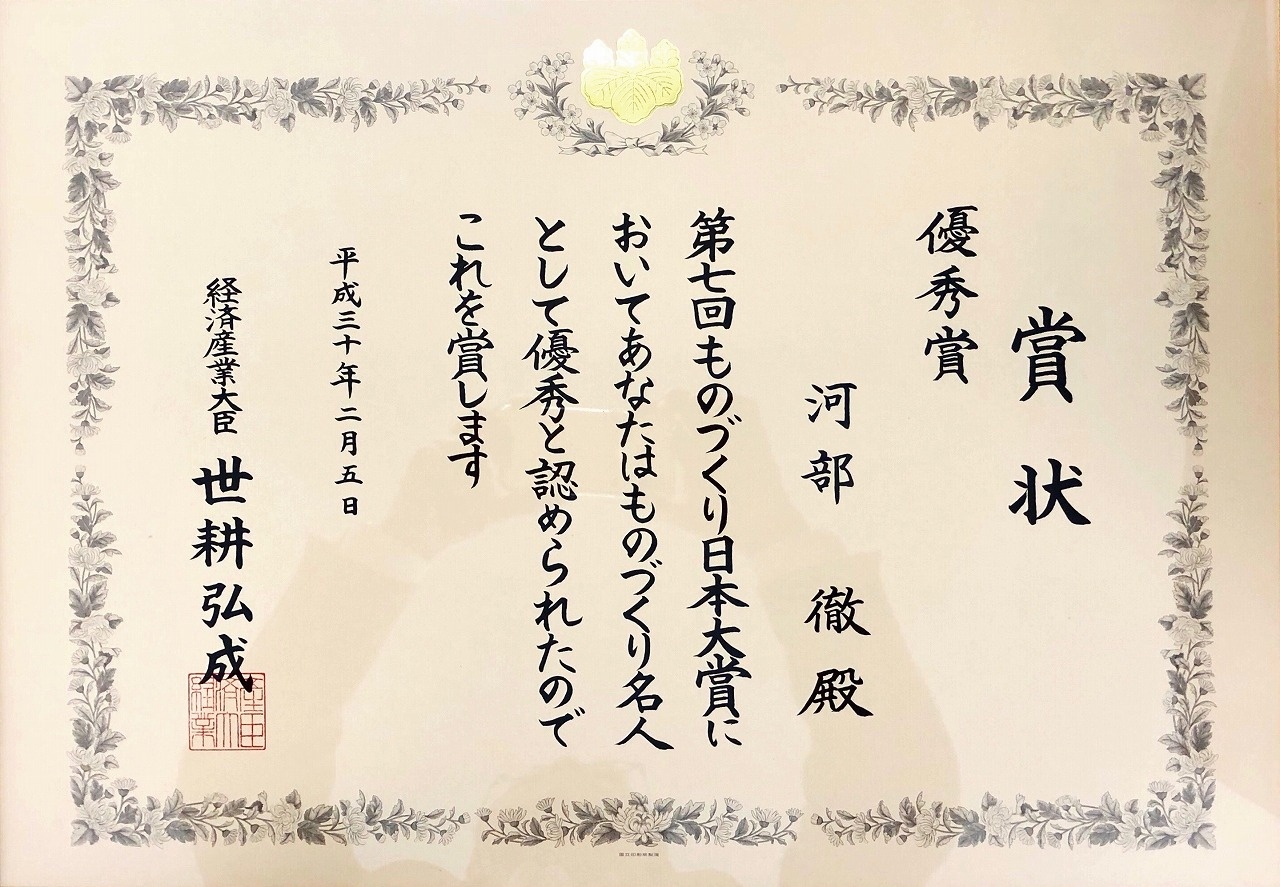 賞状
優秀賞
河部 徹 殿
第七回ものづくり日本大賞に
おいてあなたはものづくり名人
として優秀と認められたので
これを賞します
平成三十年二月五日
経済産業大臣 世耕弘成